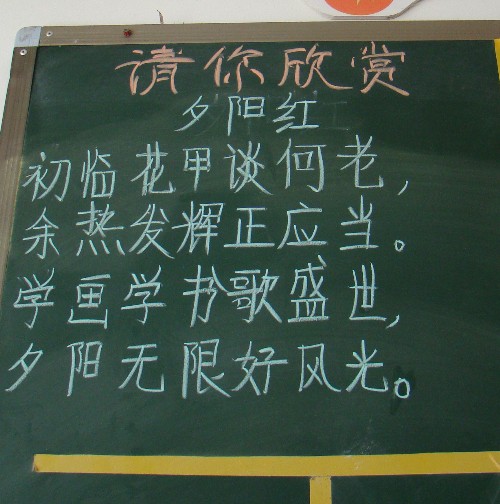 请你欣赏
夕阳红
初临花甲谈何老，
余热发辉正应当。
学画学书歌盛世，
夕阳无限好风光。